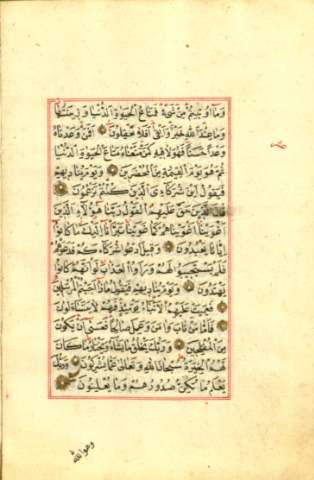 وَمَا اُوتِيتُمْ مِنْ شَيْءٍ فَمَتَاعُ الْحَيٰوةِ الدُّنْيَا وَزِينَتُهَا
وَمَا عِنْدَ اللّٰهِ خَيْرٌ وَاَبْقٰى اَفَلَا تَعْقِلُونَ اَفَمَنْ وَعَدْنَاهُ
وَعْدًا حَسَنًا فَهُوَ لَاقِيهِ كَمَنْ مَتَّعْنَاهُ مَتَاعَ الْحَيٰوةِ الدُّنْيَا
ثُمَّ هُوَ يَوْمَ الْقِيٰمَةِ مِنَ الْمُحْضَرِينَ وَيَوْمَ يُنَادِيهِمْ
فَيَقُولُ اَيْنَ شُرَكَاءِيَ الَّذِينَ كُنْتُمْ تَزْعُمُونَ
قَالَ الَّذِينَ حَقَّ عَلَيْهِمُ الْقَوْلُ رَبَّنَا هٰؤُلَاءِ الَّذِينَ
اَغْوَيْنَا اَغْوَيْنَاهُمْ كَمَا غَوَيْنَا تَبَرَّأْنَا اِلَيْكَ مَا كَانُوا
اِيَّانَا يَعْبُدُونَ وَقِيلَ ادْعُوا شُرَكَاءَكُمْ فَدَعَوْهُمْ
فَلَمْ يَسْتَجِيبُوا لَهُمْ وَرَاَوُا الْعَذَابَ لَوْ اَنَّهُمْ كَانُوا
يَهْتَدُونَ وَيَوْمَ يُنَادِيهِمْ فَيَقُولُ مَاذَا اَجَبْتُمُ الْمُرْسَلِينَ
فَعَمِيَتْ عَلَيْهِمُ الْاَنْبَاءُ يَوْمَئِذٍ فَهُمْ لَا يَتَسَاءَلُونَ
فَاَمَّا مَنْ تَابَ وَاٰمَنَ وَعَمِلَ صَالِحًا فَعَسٰى اَنْ يَكُونَ
مِنَ الْمُفْلِحِينَ وَرَبُّكَ يَخْلُقُ مَا يَشَاءُ وَيَخْتَارُ مَا كَانَ
لَهُمُ الْخِيَرَةُ سُبْحَانَ اللّٰهِ وَتَعَالٰى عَمَّا يُشْرِكُونَ وَرَبُّكَ
يَعْلَمُ مَا تُكِنُّ صُدُورُهُمْ وَمَا يُعْلِنُونَ
وهو الله